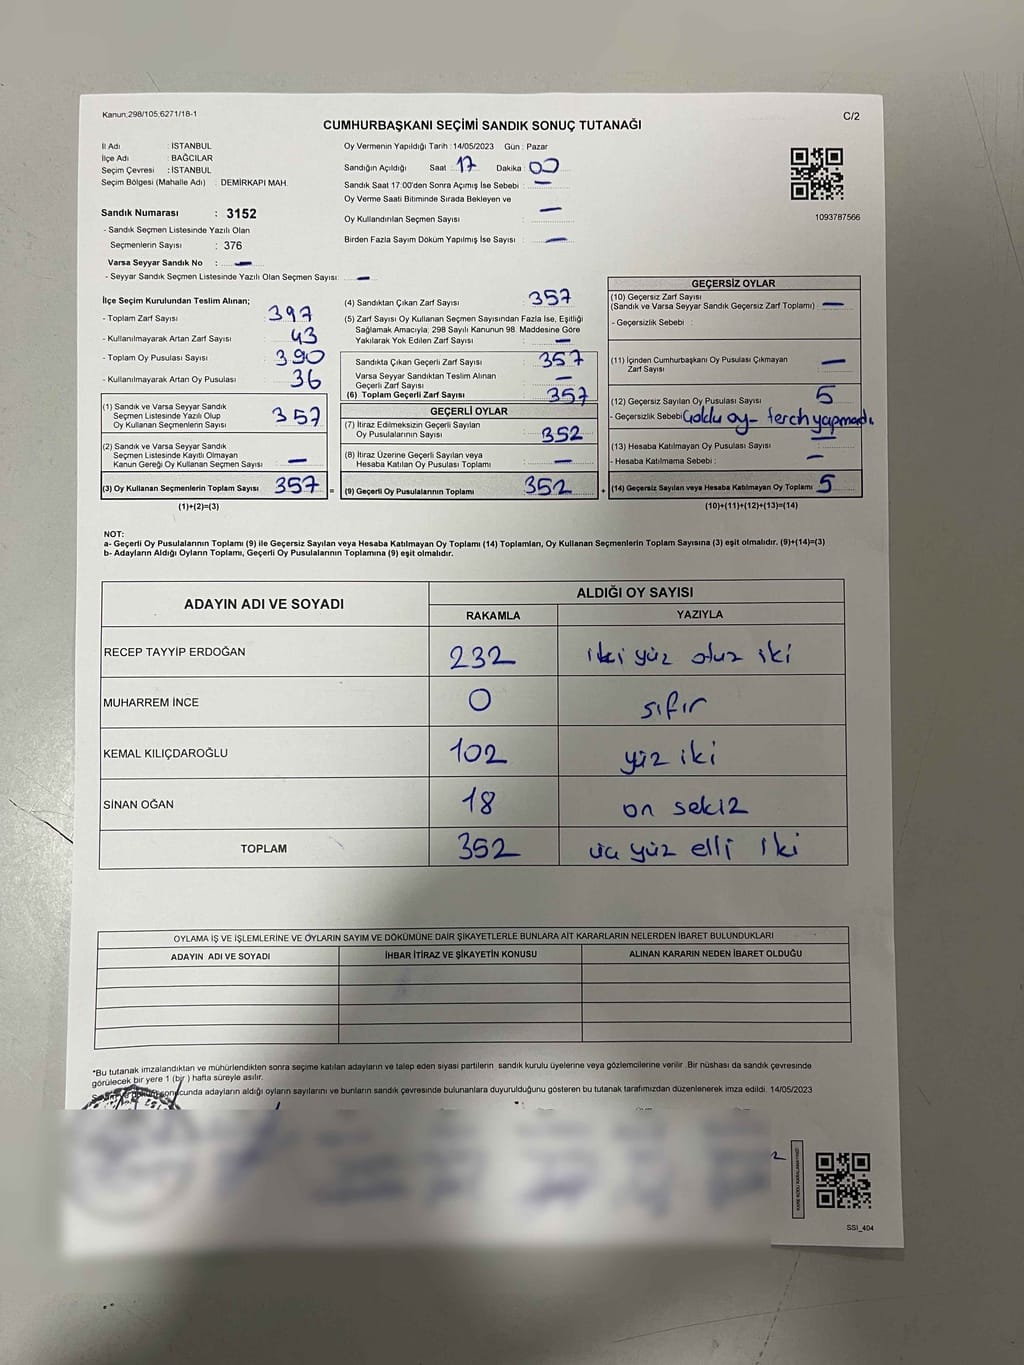 Kanun;298/105;6271/18-1
C/2
CUMHURBAŞKANI SEÇİMİ SANDIK SONUÇ TUTANAĞI
İl Adı : İSTANBUL
İlçe Adı : BAĞCILAR
Seçim Çevresi : İSTANBUL
Seçim Bölgesi (Mahalle Adı) : DEMİRKAPI MAH.
Sandık Numarası : 3152
- Sandık Seçmen Listesinde Yazılı Olan
Seçmenlerin Sayısı : 376
Varsa Seyyar Sandık No : —
- Seyyar Sandık Seçmen Listesinde Yazılı Olan Seçmen Sayısı: —
Oy Vermenin Yapıldığı Tarih : 14/05/2023 Gün : Pazar
Sandığın Açıldığı Saat : 17 Dakika : 00
Sandık Saat 17:00'den Sonra Açımış İse Sebebi : —
Oy Verme Saati Bitiminde Sırada Bekleyen ve
Oy Kullandırılan Seçmen Sayısı : —
Birden Fazla Sayım Döküm Yapılmış İse Sayısı : —
1093787566
İlçe Seçim Kurulundan Teslim Alınan;
- Toplam Zarf Sayısı 397
- Kullanılmayarak Artan Zarf Sayısı 43
- Toplam Oy Pusulası Sayısı 390
- Kullanılmayarak Artan Oy Pusulası 36
(1) Sandık ve Varsa Seyyar Sandık
Seçmen Listesinde Yazılı Olup
Oy Kullanan Seçmenlerin Sayısı 357
(2) Sandık ve Varsa Seyyar Sandık
Seçmen Listesinde Kayıtlı Olmayan
Kanun Gereği Oy Kullanan Seçmen Sayısı —
(3) Oy Kullanan Seçmenlerin Toplam Sayısı 357 =
(1)+(2)=(3)
(4) Sandıktan Çıkan Zarf Sayısı 357
(5) Zarf Sayısı Oy Kullanan Seçmen Sayısından Fazla İse, Eşitliği
Sağlamak Amacıyla; 298 Sayılı Kanunun 98. Maddesine Göre
Yakılarak Yok Edilen Zarf Sayısı —
Sandıkta Çıkan Geçerli Zarf Sayısı 357
Varsa Seyyar Sandıktan Teslim Alınan
Geçerli Zarf Sayısı —
(6) Toplam Geçerli Zarf Sayısı 357
GEÇERLİ OYLAR
(7) İtiraz Edilmeksizin Geçerli Sayılan
Oy Pusulalarının Sayısı 352
(8) İtiraz Üzerine Geçerli Sayılan veya
Hesaba Katılan Oy Pusulası Toplamı —
(9) Geçerli Oy Pusulalarının Toplamı 352 +
GEÇERSİZ OYLAR
(10) Geçersiz Zarf Sayısı
(Sandık ve Varsa Seyyar Sandık Geçersiz Zarf Toplamı) : —
- Geçersizlik Sebebi :
(11) İçinden Cumhurbaşkanı Oy Pusulası Çıkmayan
Zarf Sayısı —
(12) Geçersiz Sayılan Oy Pusulası Sayısı 5
- Geçersizlik Sebebi oy- terch
(13) Hesaba Katılmayan Oy Pusulası Sayısı —
- Hesaba Katılmama Sebebi : —
(14) Geçersiz Sayılan veya Hesaba Katılmayan Oy Toplamı 5
(10)+(11)+(12)+(13)=(14)
NOT:
a- Geçerli Oy Pusulalarının Toplamı (9) ile Geçersiz Sayılan veya Hesaba Katılmayan Oy Toplamı (14) Toplamları, Oy Kullanan Seçmenlerin Toplam Sayısına (3) eşit olmalıdır. (9)+(14)=(3)
b- Adayların Aldığı Oyların Toplamı, Geçerli Oy Pusulalarının Toplamına (9) eşit olmalıdır.
ADAYIN ADI VE SOYADI ALDIĞI OY SAYISI
RAKAMLA YAZIYLA
RECEP TAYYİP ERDOĞAN 232 iki yüz otuz iki
MUHARREM İNCE 0 sıfır
KEMAL KILIÇDAROĞLU 102 yüz iki
SİNAN OĞAN 18 on sekiz
TOPLAM 352 üç yüz elli iki
OYLAMA İŞ VE İŞLEMLERİNE VE OYLARIN SAYIM VE DÖKÜMÜNE DAİR ŞİKAYETLERLE BUNLARA AİT KARARLARIN NELERDEN İBARET BULUNDUKLARI
ADAYIN ADI VE SOYADI İHBAR İTİRAZ VE ŞİKAYETİN KONUSU ALINAN KARARIN NEDEN İBARET OLDUĞU
*Bu tutanak imzalandıktan ve mühürlendikten sonra seçime katılan adayların ve talep eden siyasi partilerin sandık kurulu üyelerine veya gözlemcilerine verilir. Bir nüshası da sandık çevresinde
görülecek bir yere 1 (bir ) hafta süreyle asılır.
sonucunda adayların aldığı oyların sayılarını ve bunların sandık çevresinde bulunanlara duyurulduğunu gösteren bu tutanak tarafımızdan düzenlenerek imza edildi. 14/05/2023
SSI_404